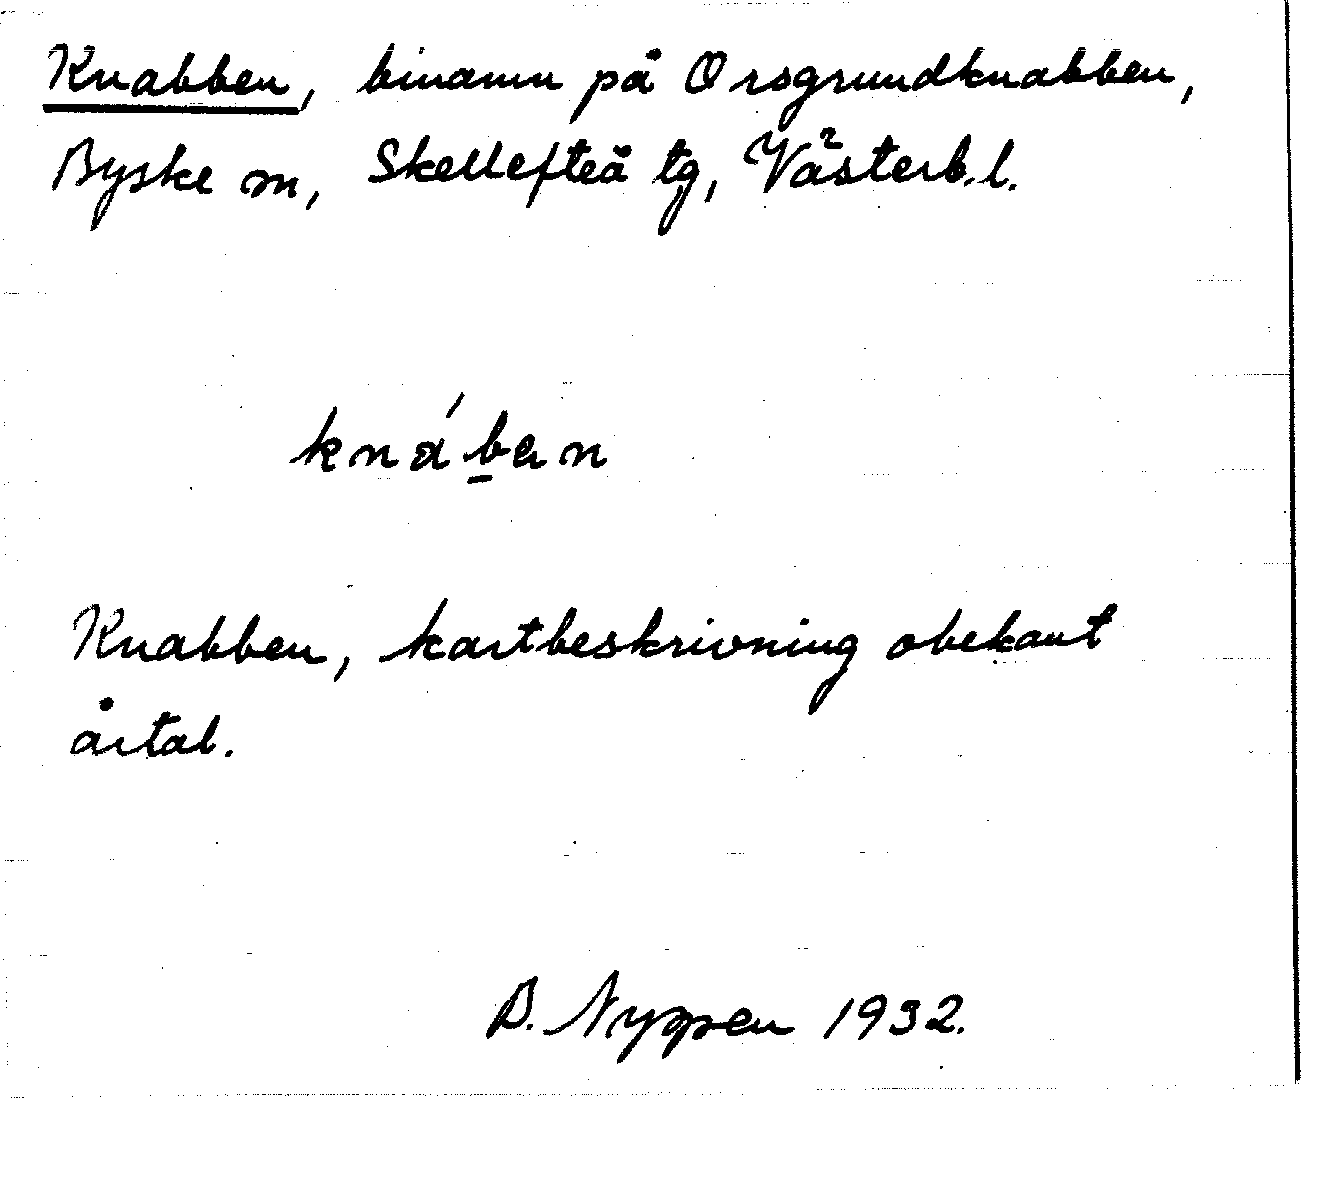 Knabben, binamn på Orsgrundknabben,
Byske sn, Skellefteå tg, Västerb. l.
knáb̲an
Knabben, kartbeskrivning obekant
årtal.
B. Nyppen 1932.